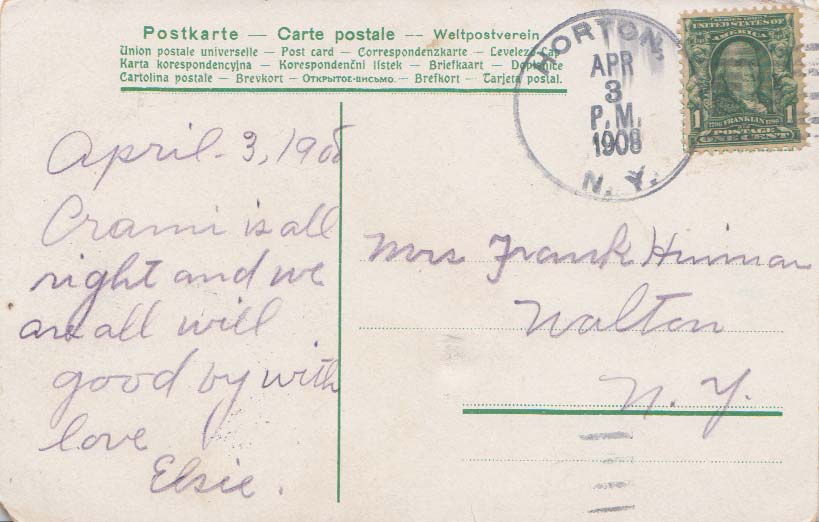 Postkarte — Carte postale — Weltpostverein
Union postale universelle — Post card — Correspondenzkarte — Levelező-Lap
Karta korespondencyjna — Korespondenční lístek — Briefkaart — Dopisnice
Cartolina postale — Brevkort — Открытое письмо — Brefkort — Tarjeta postal.
HORTON,
APR
3
P.M.
1908
N.Y.
SERIES 1902
UNITED STATES OF
AMERICA
1 1
1706 FRANKLIN 1790
POSTAGE
ONE CENT
April 3, 1908
Crami is all
right and we
are all will
good by with
love
Elsie.
Mrs Frank Hinman
Walton
N.Y.